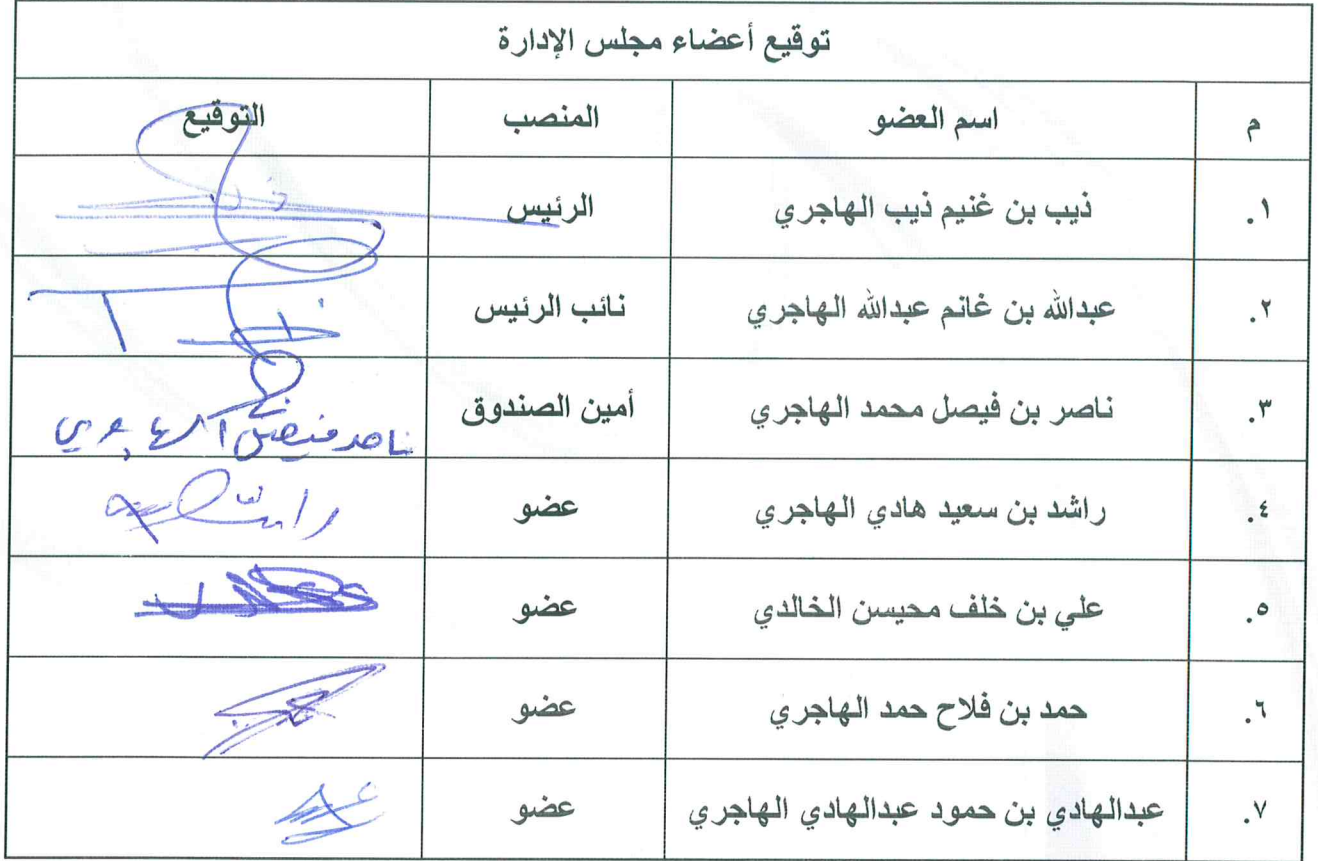 توقيع أعضاء مجلس الإدارة
م اسم العضو المنصب التوقيع
١. ذيب بن غنيم ذيب الهاجري الرئيس
٢. عبدالله بن غانم عبدالله الهاجري نائب الرئيس
٣. ناصر بن فيصل محمد الهاجري أمين الصندوق ناصر فيصل الهاجري
٤. راشد بن سعيد هادي الهاجري عضو راشد
٥. علي بن خلف محيسن الخالدي عضو
٦. حمد بن فلاح حمد الهاجري عضو
٧. عبدالهادي بن حمود عبدالهادي الهاجري عضو